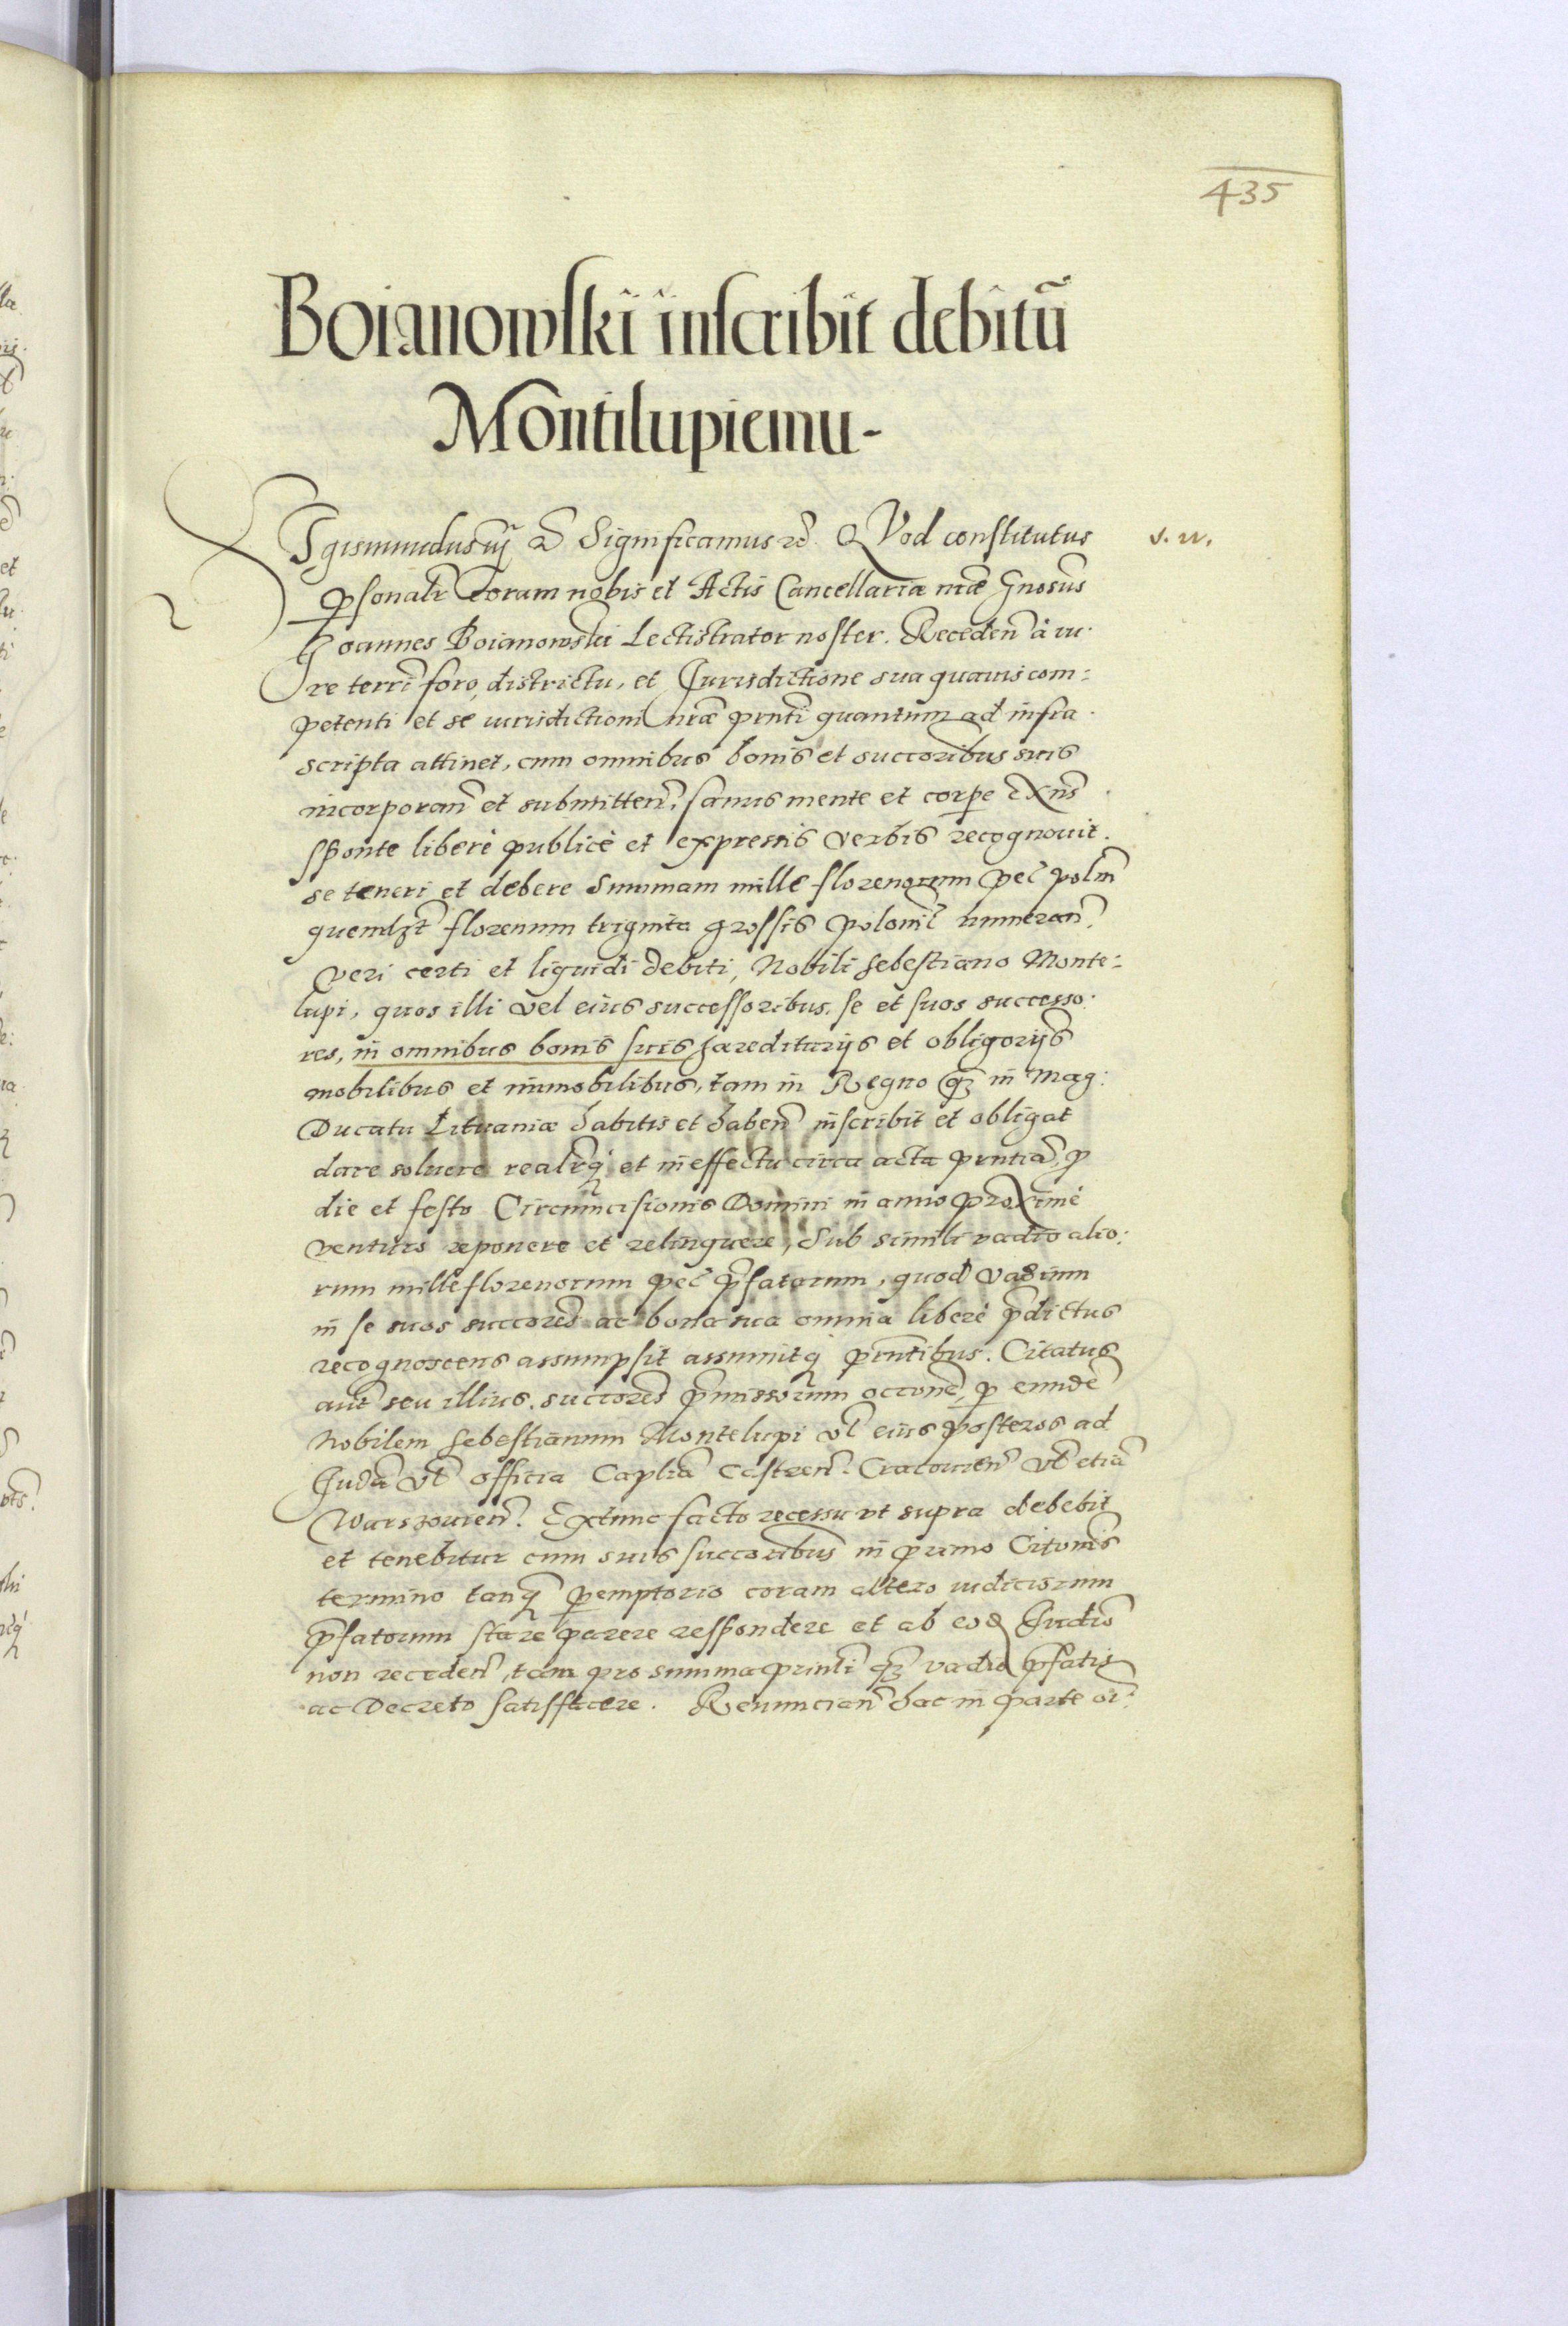 435
Boianowski inscribit debitū
Montilupiemu-
Sigismundus iij &c Significamus &c. QVod constitutus
s. n.
psonalr Coram nobis et Actis Cancellariæ nræ Gnosus
Joannes Boianowski Lectistrator noster. Receden à iu-
re terri foro, districtu, et Jurisdictione sua quauis com-
petenti et se iurisdictioni nræ pnti quantum ad infra
scripta attinet, cum omnibus bonis et succoribus suis
incorporan et submitten, sanus mente et corpe exns
sponte liberè publicè et expressis verbis recognouit
se teneri et debere Summam mille florenorum pec polm
quemlzt florenum triginta grossis polonic numeran
veri certi et liquidi debiti, Nobili Sebestiano Monte-
lupi, quos illi vel eius successoribus, se et suos successo-
res, in omnibus bonis suis hæreditarijs et obligorijs
mobilibus et immobilibus, tam in Regno qz in Mag:
Ducatu Lituaniæ habitis et haben inscribit et obligat
dare soluere realrq et in effectu circa acta pntia, p
die et festo Circumcisionis Domini in anno proximè
venturo reponere et relinquere, Sub simili vadio alio-
rum mille florenorum pec pfatorum, quod vadium
in se suos succores ac bona sua omnia liberè pdictus
recognoscens assumpsit assumitq pntibus. Citatus
aut seu illius succores pmissorum occone, p eundē
Nobilem Sebestianum Montelupi vl eius posteros ad
Juda vl officia Caplia Castren. Cracouien vl etiā
Warszouien. Extunc facto recessu vt supra debebit
et tenebitur cum suis succoribus in primo Citonis
termino tanq peremptorio coram altero iudiciorum
pfatorum stare parere respondere et ab eod Judio
non receden, tam pro summa printi qz vadio pfatis
ac Decreto satisffacere. Renuncian hac in parte oi-